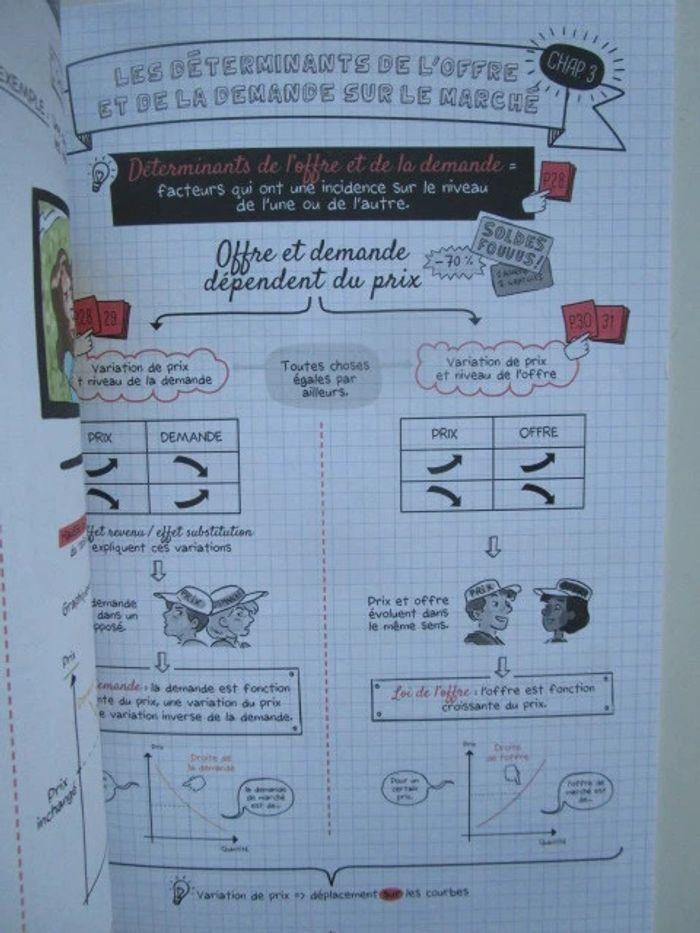 EXEMPLE :
LES DÉTERMINANTS DE L'OFFRE
ET DE LA DEMANDE SUR LE MARCHÉ
CHAP 3
Déterminants de l'offre et de la demande =
facteurs qui ont une incidence sur le niveau
de l'une ou de l'autre.
P28
Offre et demande
dépendent du prix
-70 %
SOLDES
FOUUUS!
P28 29
P.30 31
Variation de prix
t niveau de la demande
Toutes choses
égales par
ailleurs.
Variation de prix
et niveau de l'offre
PRIX DEMANDE
PRIX OFFRE
ffet revenu / effet substitution
expliquent ces variations
demande
dans un
pposé.
PRIX
Prix et offre
évoluent dans
le même sens.
PRIX
emande : la demande est fonction
nte du prix, une variation du prix
e variation inverse de la demande.
Loi de l'offre : l'offre est fonction
croissante du prix.
Prix
Droite de
la demande
la demande
de marché
est de...
Quantité
Prix
Droite
de l'offre
Pour un
certain
prix,
l'offre de
marché est
de...
Quantité
Prix
Prix
inchangé
Variation de prix => déplacement sur les courbes